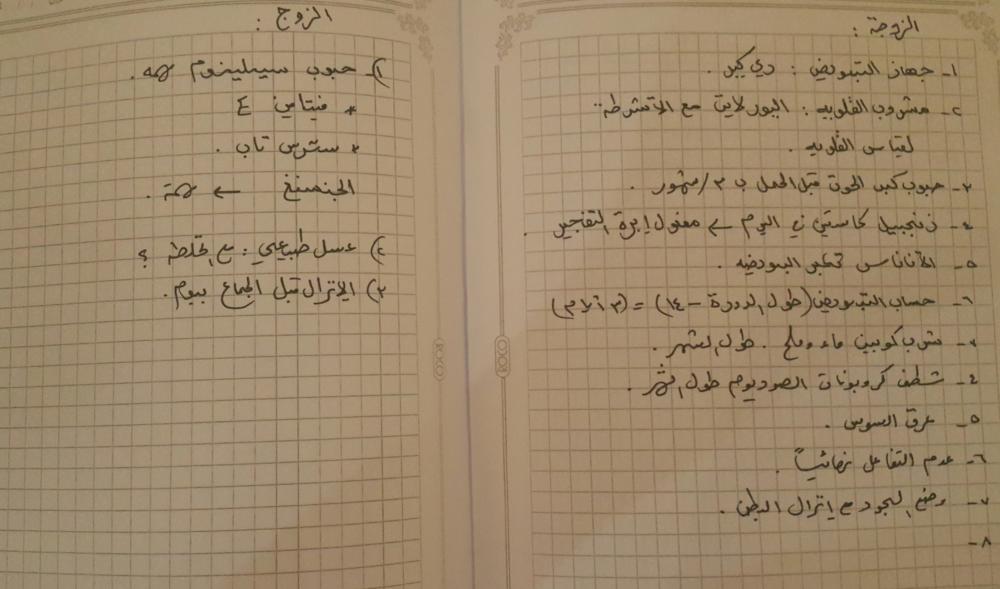 الزوجة :
١- جهاز التبويض : دي كير .
٢- مشروب القلويه : البورلايت مع الأشرطة
لقياس القلويه .
٣- حبوب كبد الحوت قبل الحمل ب ٣/شهور .
٤- زنجبيل كاستي في اليوم ← مفعول إبرة التفجير .
٥- الأناناس تكبر البويضه .
٦- حساب التبويض (طول الدورة - ١٤) = (٣ أيام)
٧- شرب كوبين ماء وملح . طول الشهر .
٤- شطف كربونات الصوديوم طول الشهر .
٥- عرق السوس .
٦- عدم التفاعل نهائياً .
٧- وضع السجود مع إنزال البطن .
٨-
الزوج :
١) حبوب سيلينيوم
* فيتامين E
* سترس تاب .
الجنسنغ ←
٢) عسل طبيعي : مع الخلطة ؟
٣) الإنزال قبل الجماع بيوم .